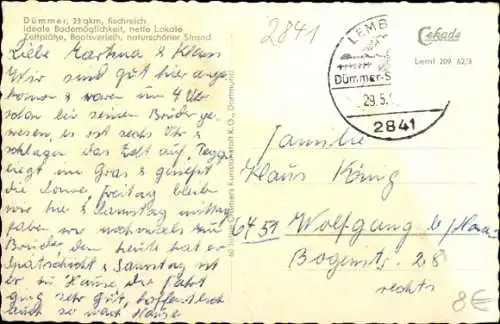 Dümmer, 23 qkm, fischreich
ideale Bademöglichkeit, nette Lokale
Zeltplätze, Bootsverleih, naturschöner Strand
Liebe Martina & Klaus
Wir sind gut hier ange
komen & waren um 4 Uhr
schon bei seinen Bruder ge
wesen, es ist sechs Uhr &
schlagen das Zelt auf, Peggi
liegt im Gras & genießt
die Sonne, Freitag bleiben
wir hier & Samstag mittag
fahren wir nochmals zu
Bruder den heute hat er
Spätschicht & Samstag ist
er zu Hause, die Fahrt
ging sehr gut, hoffentlich
auch so nach Hause
Cramers Kunstanstalt K.G., Dortmund
2841
LEMB
Dümmer-S
29.5.
2841
Cekade
Lemf 209 62/3
Familie
Klaus König
6451 Wolfgang b/Hanau
Bogenstr. 28
rechts
8€